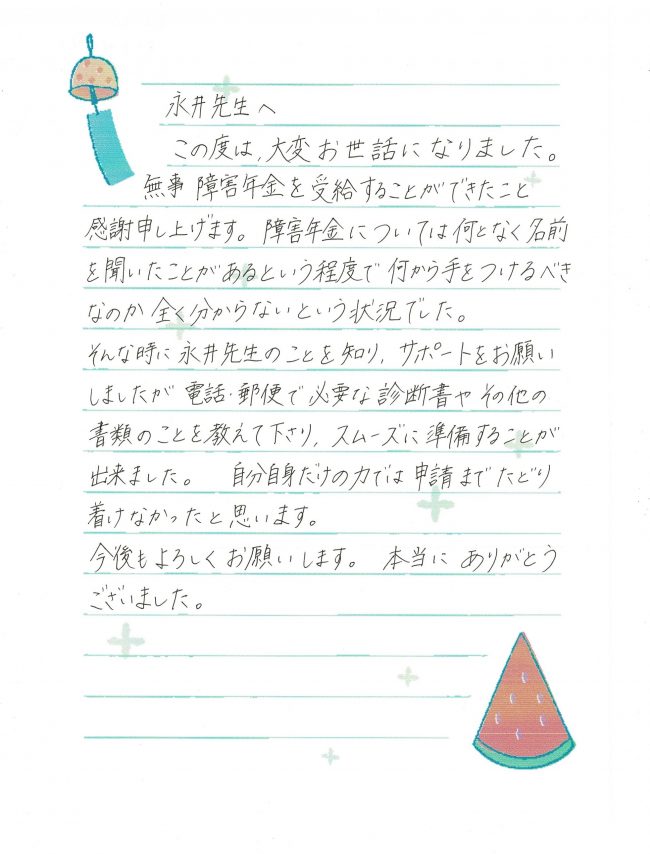 永井先生へ
この度は、大変お世話になりました。
無事 障害年金を受給することができたこと
感謝申し上げます。障害年金については何となく名前
を聞いたことがあるという程度で何から手をつけるべき
なのか 全く分からないという状況でした。
そんな時に永井先生のことを知り、サポートをお願い
しましたが 電話・郵便で必要な診断書やその他の
書類のことを教えて下さり、スムーズに準備することが
出来ました。 自分自身だけの力では申請までたどり
着けなかったと思います。
今後もよろしくお願いします。 本当に ありがとう
ございました。